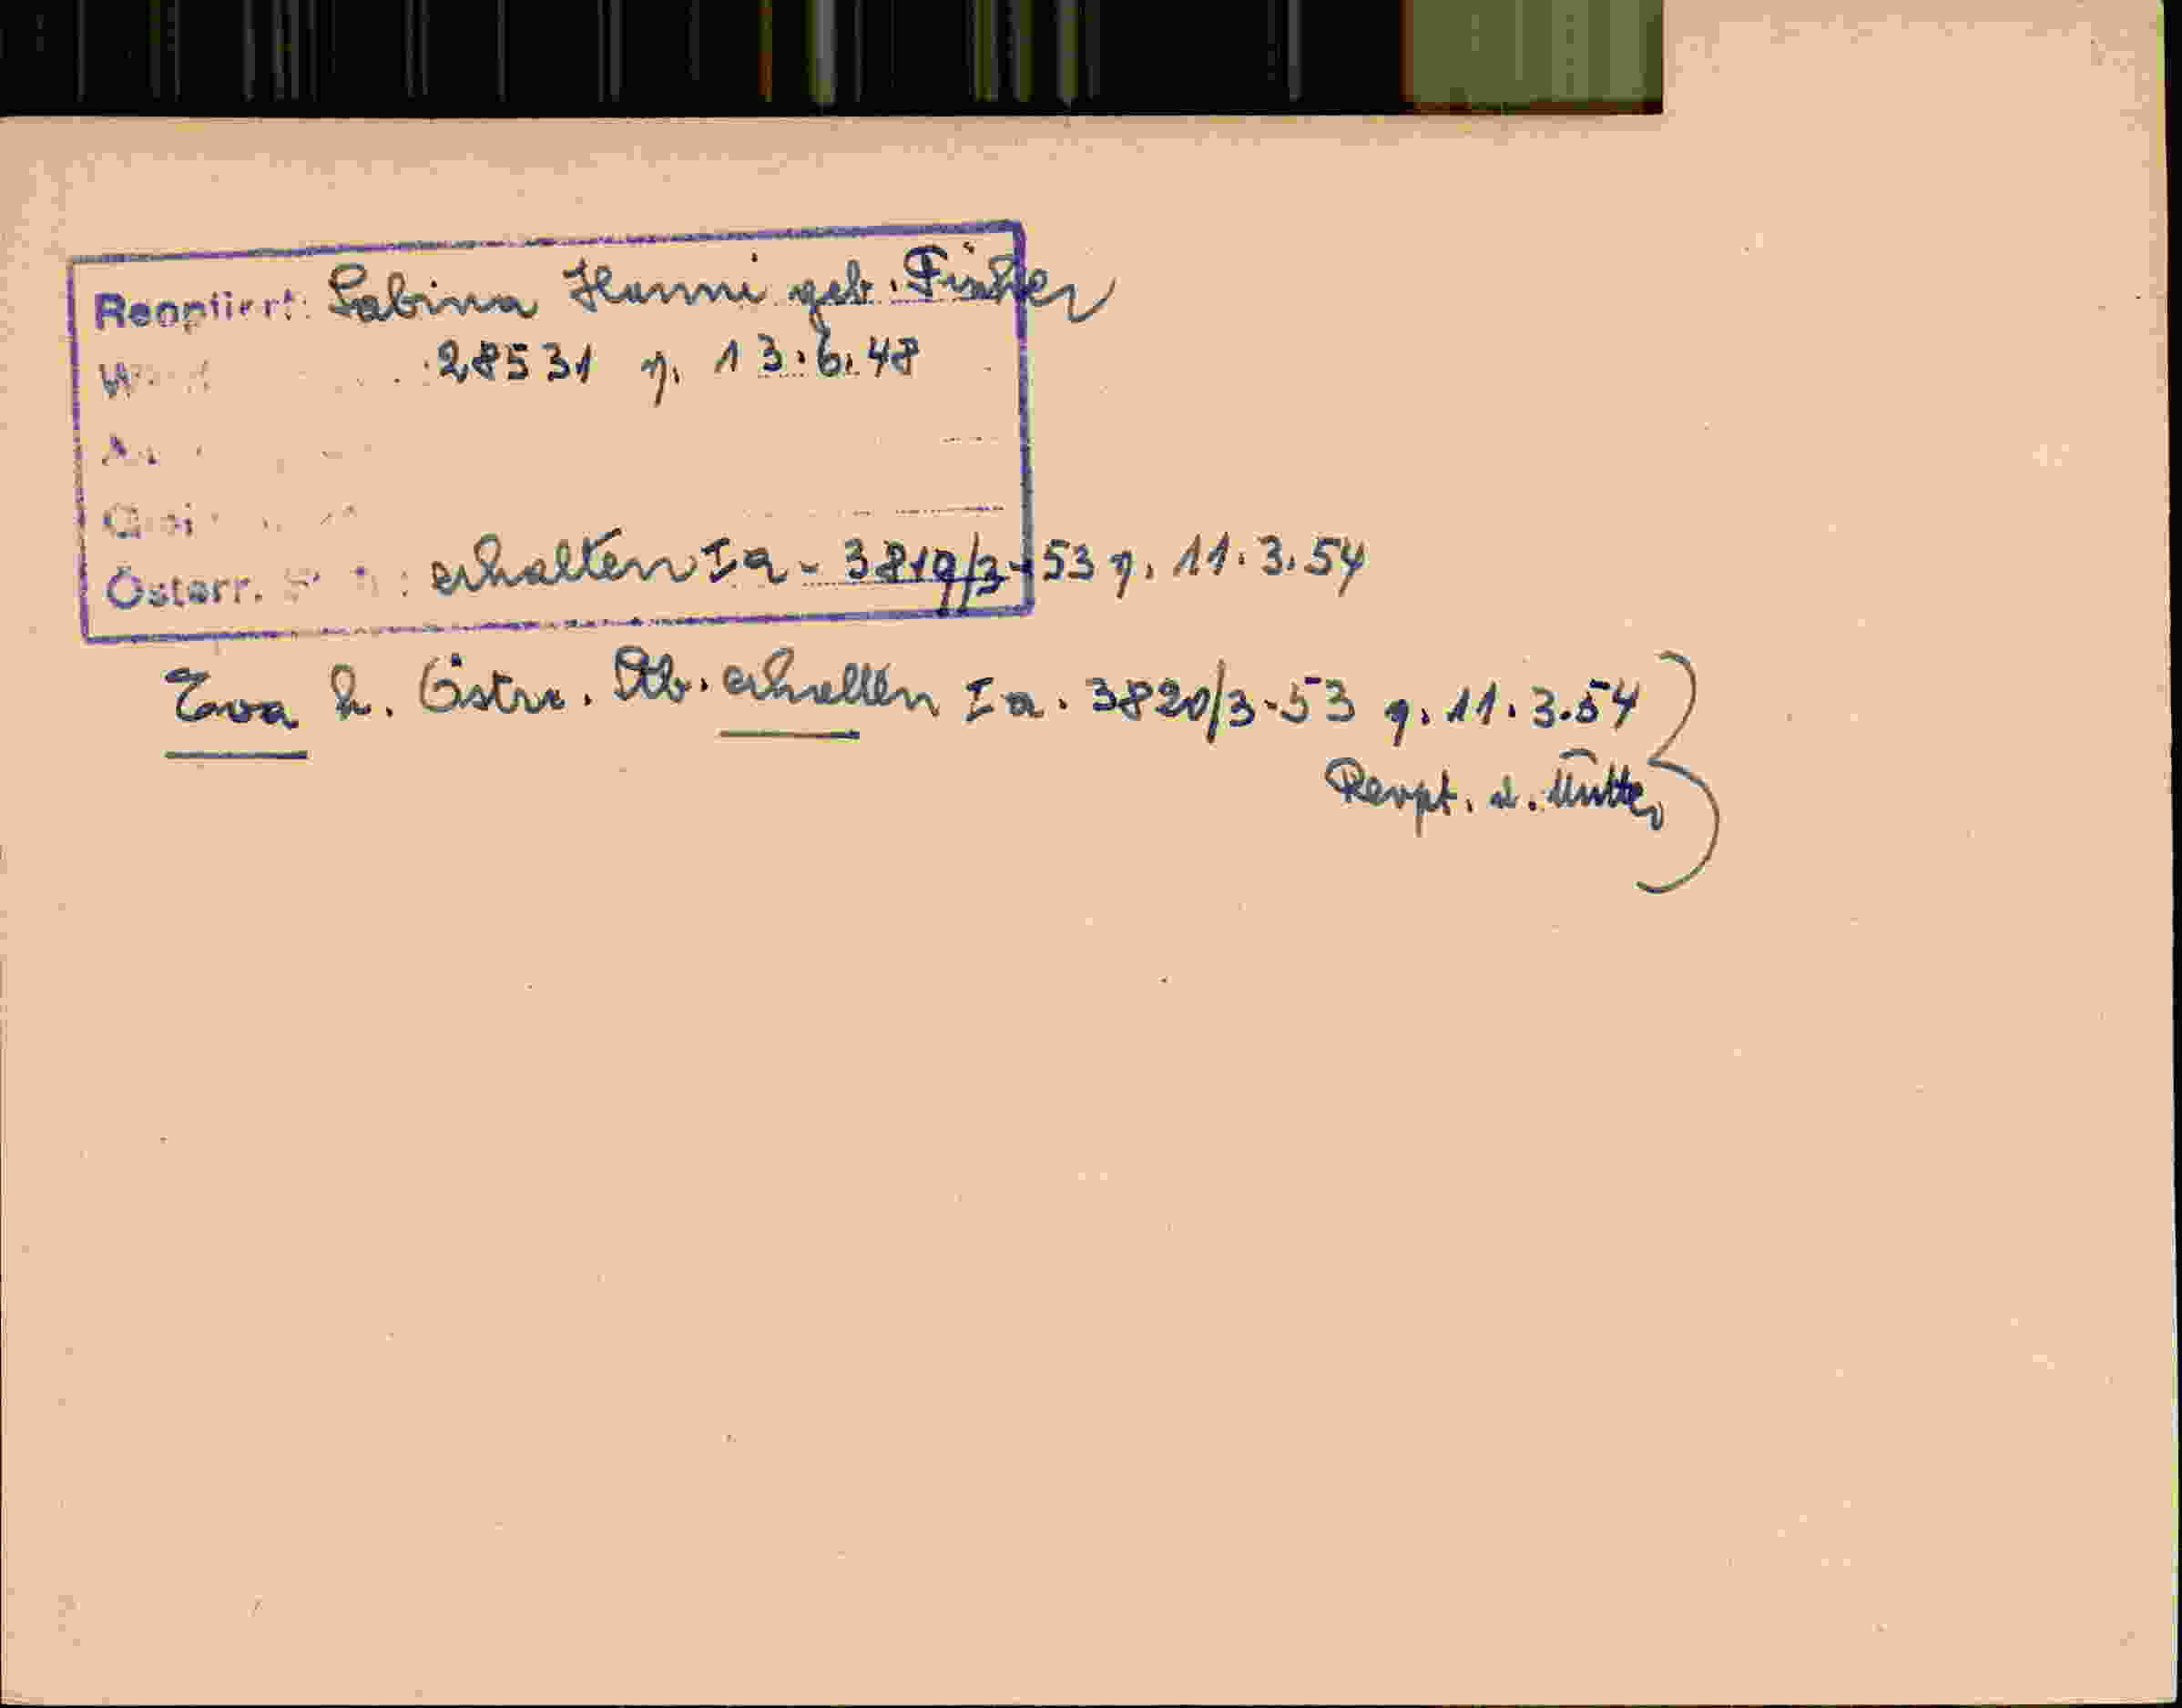 Reoptiert: Sabina Hanni geb. Finster
28531 v. 13.6.48
Österr. : erhalten Ia - 3819/3-53 v. 11.3.54
Eva h. Östrr. Stb. erhalten Ia. 3820/3-53 v. 11.3.54
Reopt. d. Mutter